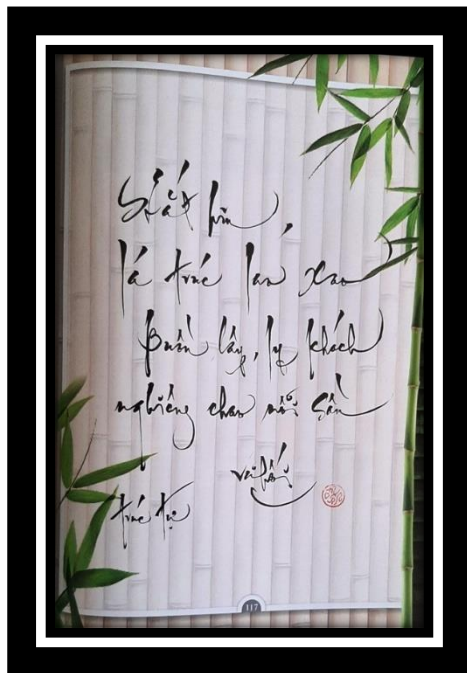 lá trúc lao xao
Buồn lây, ly khách
nghiêng chao nỗi sầu
vũ hối
trúc tự
117